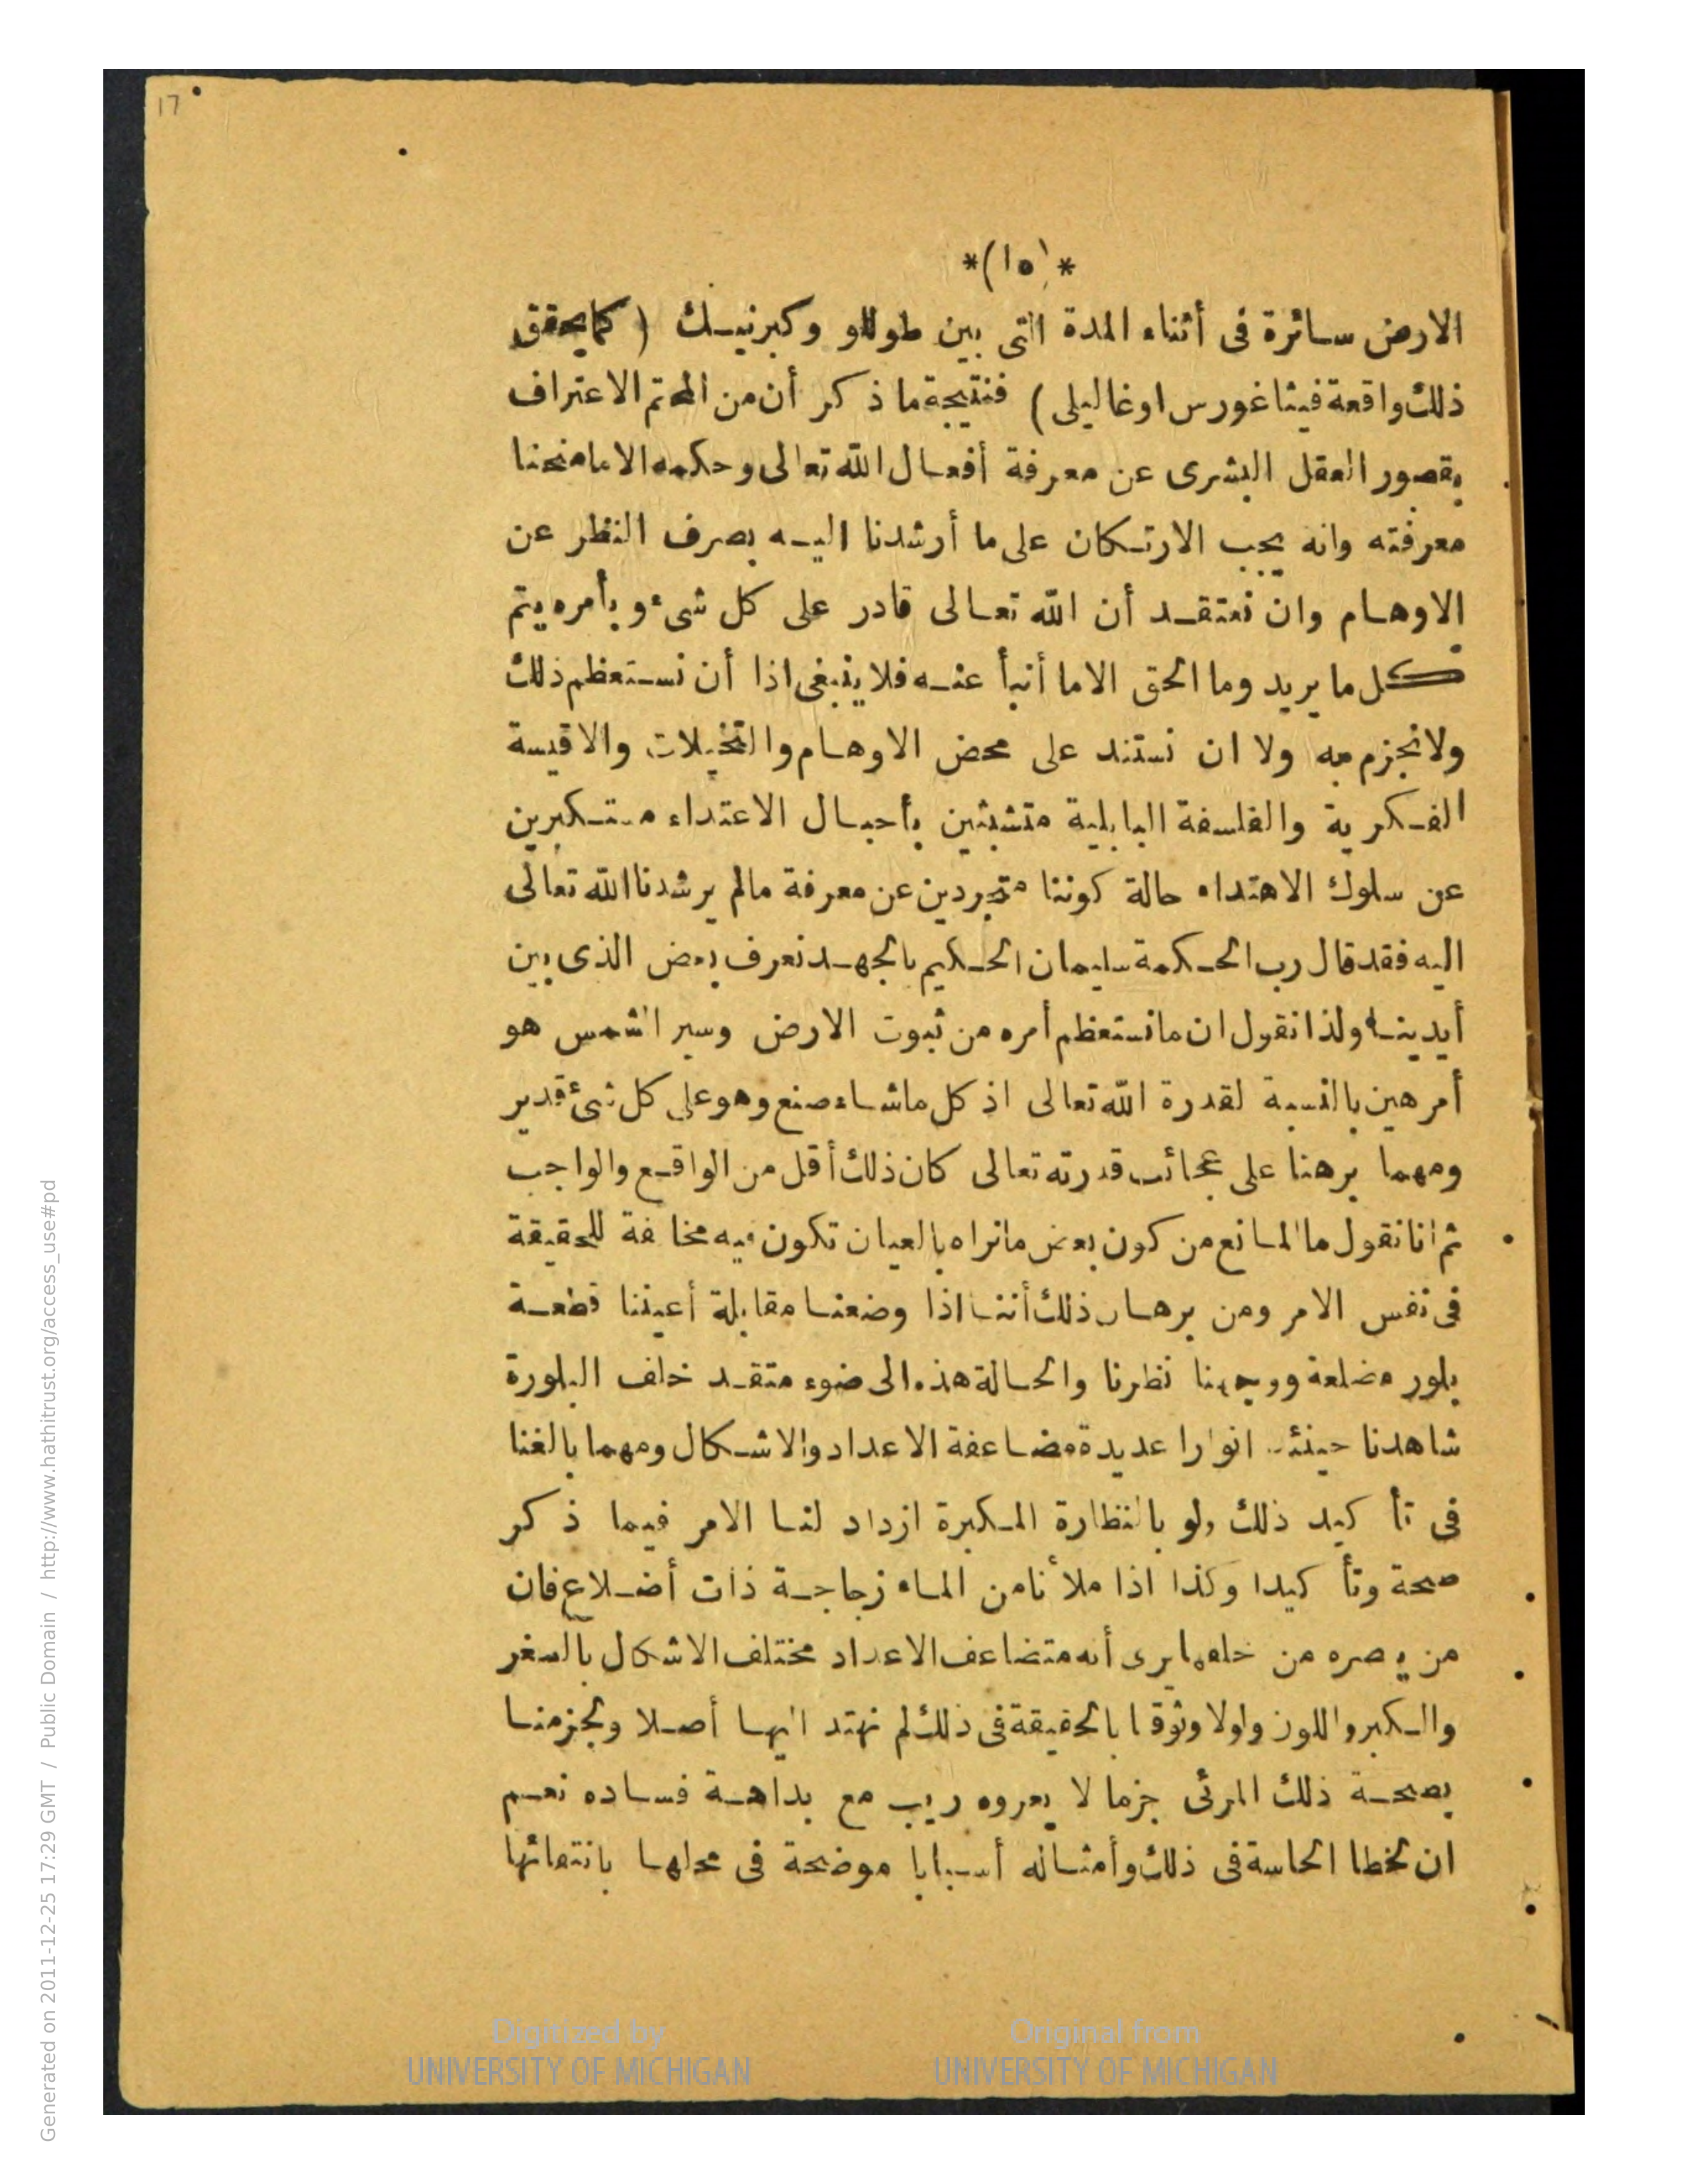 17
*(١٥)*
الارض سائرة فى أثناء المدة التى بين طوللو وكبرنيك ( كما يحقق
ذلك واقعة فيثاغورس او غاليلى ) فنتيجة ما ذكر أن من المحتم الاعتراف
بقصور العقل البشرى عن معرفة أفعال الله تعالى وحكمه الا ما منحنا
معرفته وانه يجب الارتكان على ما أرشدنا اليه بصرف النظر عن
الاوهام وان نعتقد أن الله تعالى قادر على كل شىء وبأمره يتم
كل ما يريد وما الحق الا ما أنبأ عنه فلا ينبغى اذا أن نستعظم ذلك
ولا نجزم به ولا ان نستند على محض الاوهام والتخيلات والاقيسة
الفكرية والفلسفة البابلية متشبثين بأحبال الاعتداء مستكبرين
عن سلوك الاهتداء حالة كوننا متجردين عن معرفة مالم يرشدنا الله تعالى
اليه فقد قال رب الحكمة سليمان الحكيم بالجهد نعرف بعض الذى بين
أيدينا ولذا نقول ان ما نستعظم أمره من ثبوت الارض وسير الشمس هو
أمر هين بالنسبة لقدرة الله تعالى اذ كل ما شاء صنع وهو على كل شىء قدير
ومهما برهنا على عجائب قدرته تعالى كان ذلك أقل من الواقع والواجب
ثم انا نقول ما المانع من كون بعض ما نراه بالعيان تكون فيه مخالفة للحقيقة
فى نفس الامر ومن برهان ذلك أننا اذا وضعنا مقابلة أعيننا قطعة
بلور مضلعة ووجهنا نظرنا والحالة هذه الى ضوء متقد خلف البلورة
شاهدنا حينئذ انوارا عديدة مضاعفة الاعداد والاشكال ومهما بالغنا
فى تأكيد ذلك ولو بالنظارة المكبرة ازداد لنا الامر فيما ذكر
صحة وتأكيدا وكذا اذا ملأنا من الماء زجاجة ذات أضلاع فان
من يبصره من خلفها يرى أنه متضاعف الاعداد مختلف الاشكال بالصغر
والكبر واللون ولولا وثوقنا بالحقيقة فى ذلك لم نهتد اليها أصلا ولجزمنا
بصحة ذلك المرئى جزما لا يعروه ريب مع بداهة فساده نعم
ان لخطا الحاسة فى ذلك وأمثاله أسبابا موضحة فى محلها بانتفائها
Digitized by
UNIVERSITY OF MICHIGAN
Original from
UNIVERSITY OF MICHIGAN
Generated on 2011-12-25 17:29 GMT / Public Domain / http://www.hathitrust.org/access_use#pd